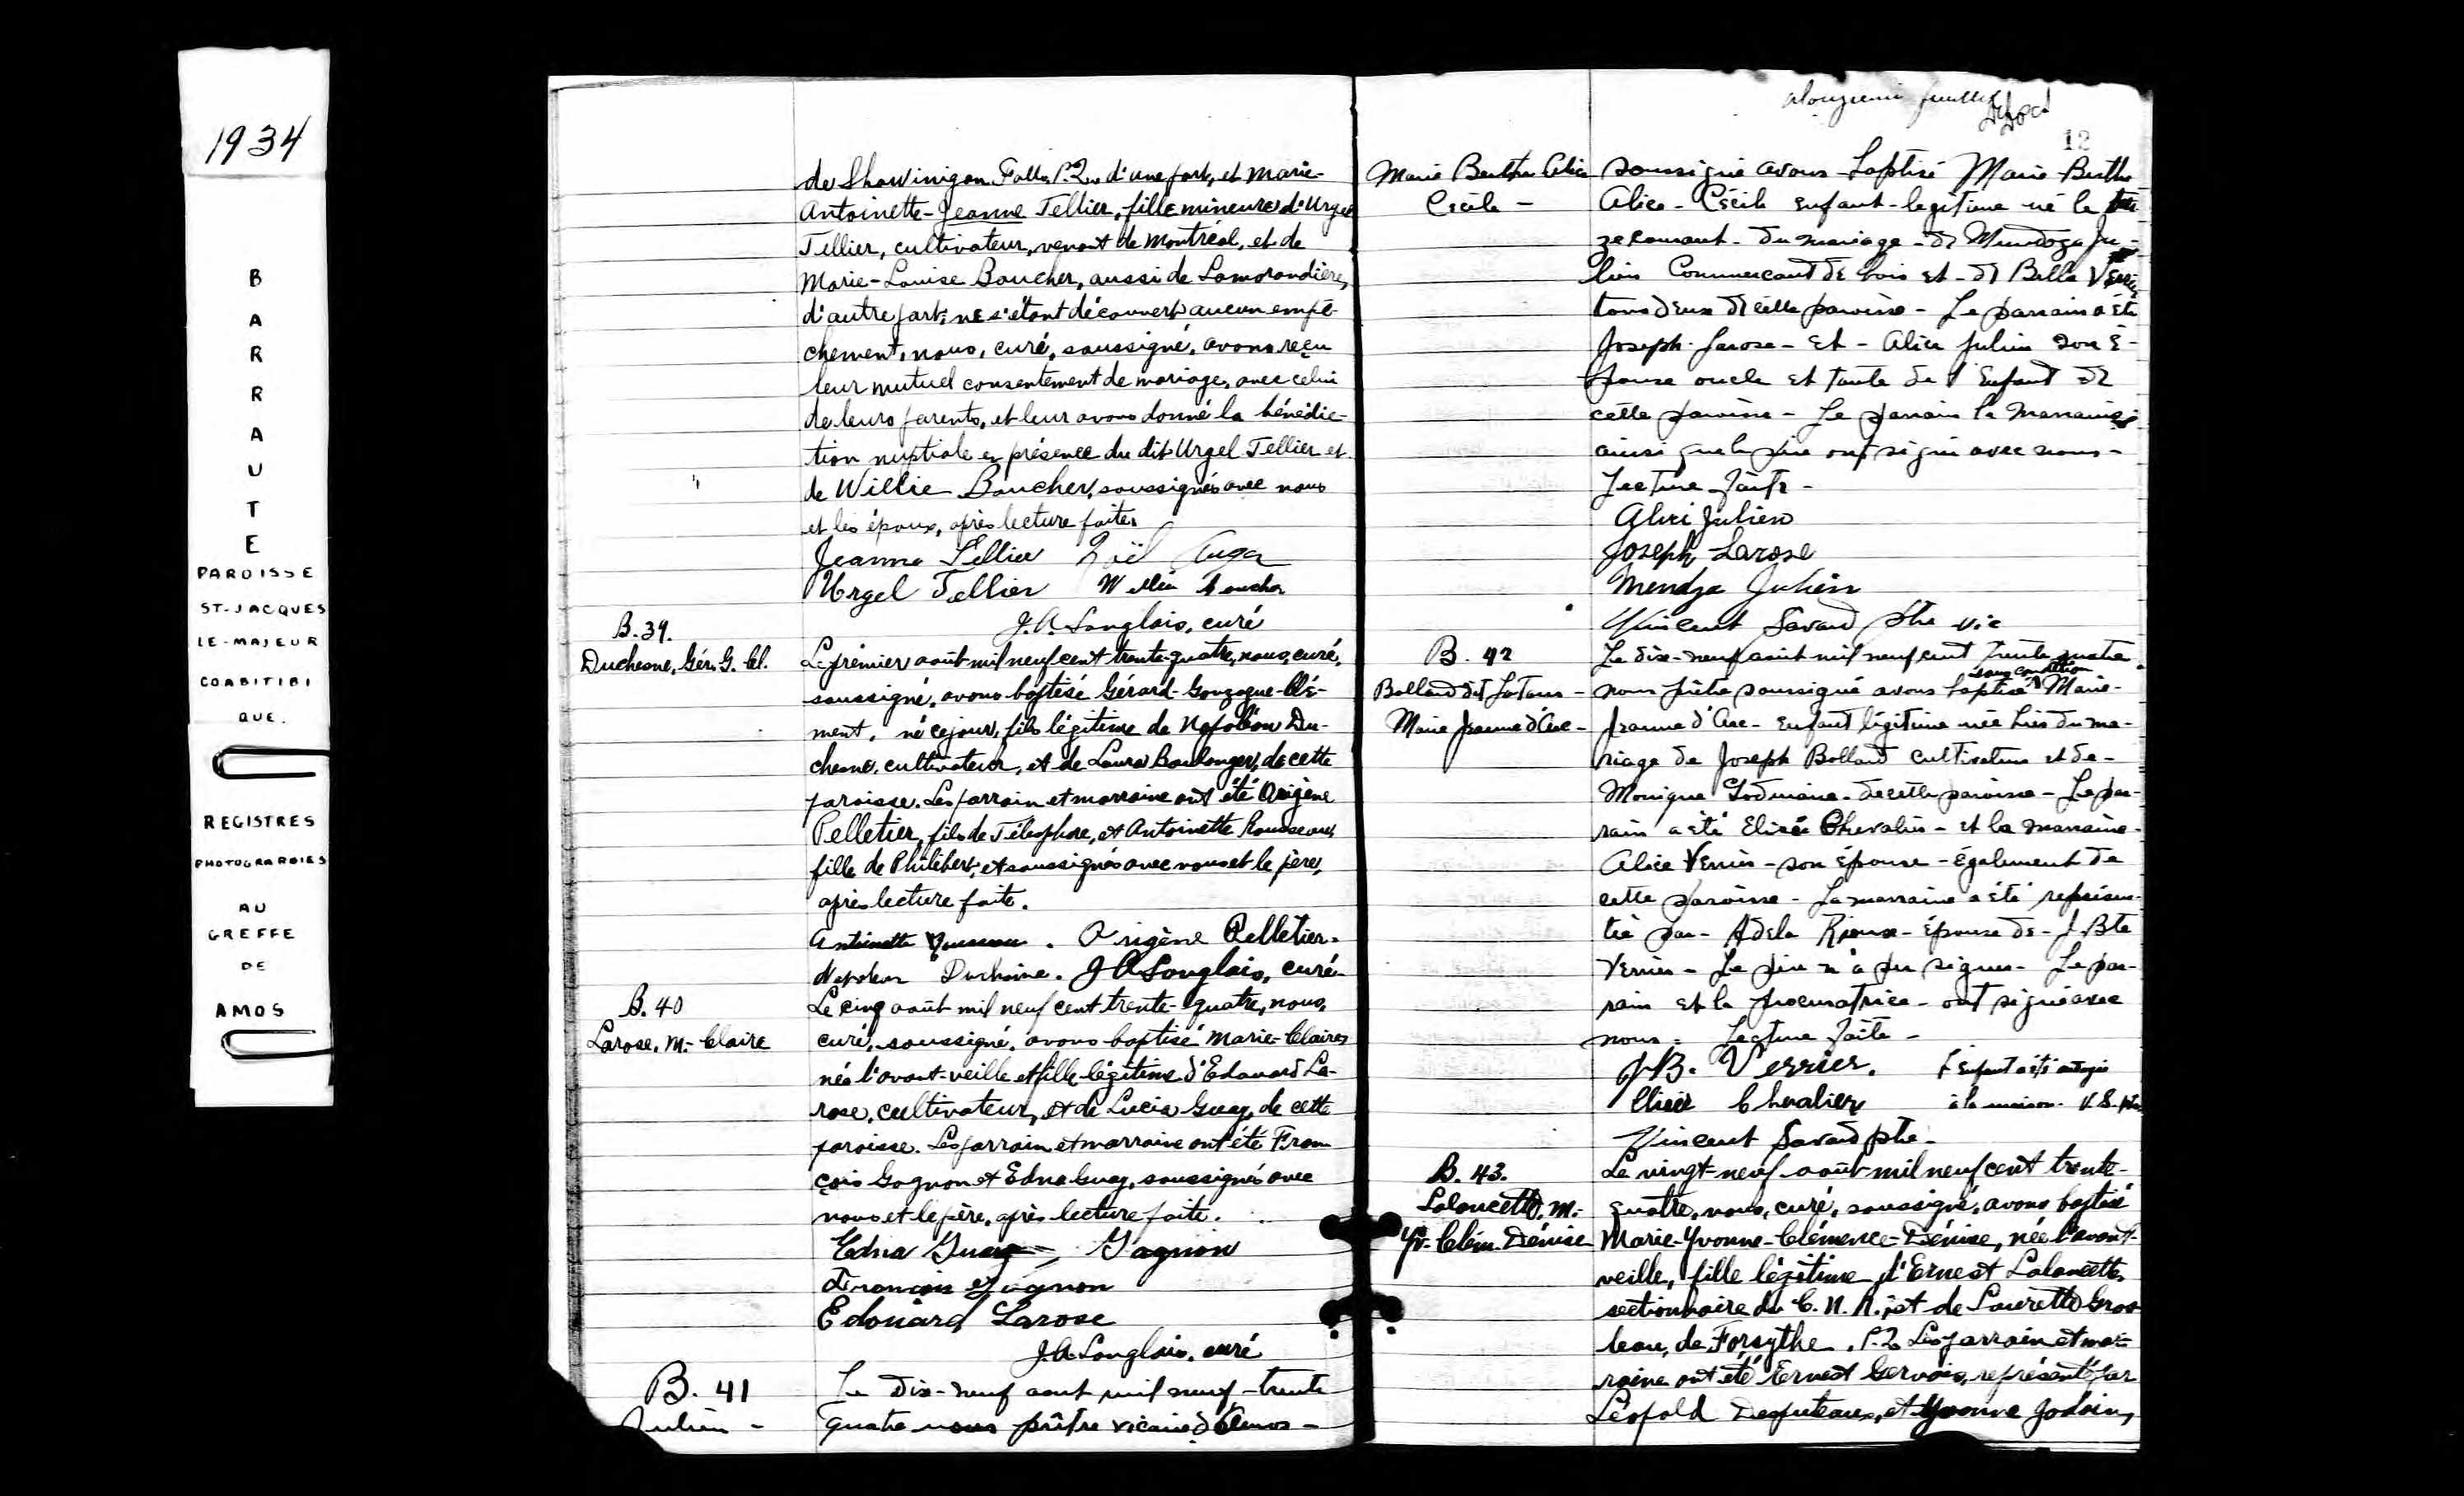 1934
BARRAUTE
PAROISSE
ST-JACQUES
LE-MAJEUR
COABITIBI
QUE.
REGISTRES
PHOTOGRAPHIES
AU
GREFFE
DE
AMOS
de Shawinigan Falls P.Q. d'une part, et Marie-
Antoinette-Jeanne Tellier, fille mineure d'Urgel
Tellier, cultivateur, venant de Montréal, et de
Marie-Louise Boucher, aussi de Lamorandière,
d'autre part; ne s'étant découvert aucun empê-
chement, nous, curé, soussigné, avons reçu
leur mutuel consentement de mariage, avec celui
de leurs parents, et leur avons donné la bénédic-
tion nuptiale en présence du dit Urgel Tellier et
de Willie Boucher, soussignés avec nous
et les époux, après lecture faite.
Jeanne Tellier Auger
Urgel Tellier Willie Boucher
J.A. Langlois, curé
B.39.
Duchesne, Gér. G. Cl.
Le premier août mil neuf cent trente-quatre, nous, curé,
soussigné, avons baptisé Gérard-Gonzague-Clé-
ment, né ce jour, fils légitime de Napoléon Du-
chesne, cultivateur, et de Laura Boulanger, de cette
paroisse. Les parrain et marraine ont été Origène
Pelletier, fils de Télesphore, et Antoinette Rousseau,
fille de Philibert, et soussignés avec nous et le père,
après lecture faite.
Antoinette Rousseau. Origène Pelletier.
Napoleon Duchaine. J A Langlois, curé
B.40
Larose, M.-Claire
Le cinq août mil neuf cent trente-quatre, nous,
curé, soussigné, avons baptisé Marie-Claire,
née l'avant-veille et fille légitime d'Edouard La-
rose, cultivateur, et de Lucia Guay, de cette
paroisse. Les parrain et marraine ont été Fran
çois Gagnon et Edna Guay, soussignés avec
nous et le père, après lecture faite.
Edna Guay Gagnon
François Gagnon
Edouard Larose
J.A. Langlois, curé
B. 41
Julien -
Le dix-neuf aout mil neuf-trente
quatre nous prêtre vicaire d'Amos -
12
Marie Berthe Alice
Cécile -
soussigné avons baptisé Marie Berthe
Alice - Cécile enfant légitime né le
ze courant - du mariage - de Ju-
lien Commerçant de bois et - de Bella Verrier
tous deux de cette paroisse - Le parrain a été
Joseph Larose - et - Alice Julien son é-
pouse oncle et tante de l'enfant de
cette paroisse - Le parrain la marraine
ainsi que le père ont signé avec nous -
Lecture faite -
Julien
Joseph Larose
Mendza Julien
Vincent Savard ptre vic
B. 42
Bolland dit
Marie Jeanne d'Arc -
Le dix-neuf août mil neuf cent trente quatre
nous prêtre soussigné avons baptisé sous condition Marie-
Jeanne d'Arc - enfant légitime née hier du ma-
riage de Joseph Bolland cultivateur et de -
Monique - de cette paroisse - Le par-
rain a été Elisée Chevalier - et la marraine -
Alice Verrier - son épouse - également de
cette paroisse - La marraine a été représen-
tée par - Adela Rioux - épouse de - J. Bte
Verrier - Le père n'a pu signer - Le par-
rain et la procuratrice - ont signé avec
nous - Lecture faite -
J.B. Verrier. L'enfant a été ondoyée
Elisée Chevalier à la maison. V.S. ptre
Vincent Savard ptre -
B. 43.
Laloncette, M.-
Yv.-Clém.-Dénise
Le vingt-neuf août mil neuf cent trente-
quatre, nous, curé, soussigné, avons baptisé
Marie-Yvonne-Clémence-Dénise, née l'avant-
veille, fille légitime d'Ernest Laloncette,
sectionnaire du C.N.R., et de Laurette Gros
leau, de Forsythe, P.Q. Les parrain et mar-
raine ont été Ernest Gervais, représenté par
Léopold Desputeaux, et Yvonne Jodoin,